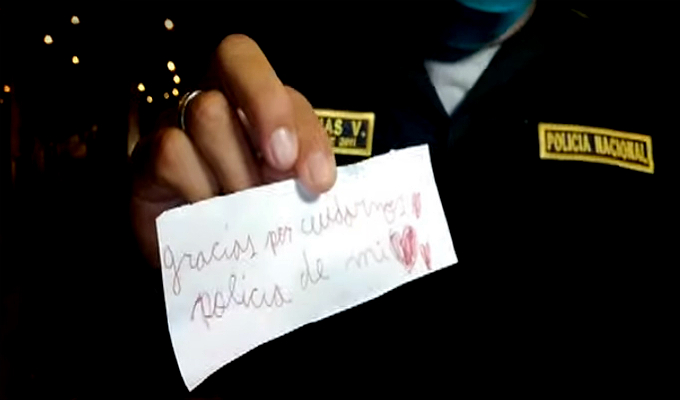 AS V.
POLICIA NACIONAL
gracias por cuidarnos
policia de mi